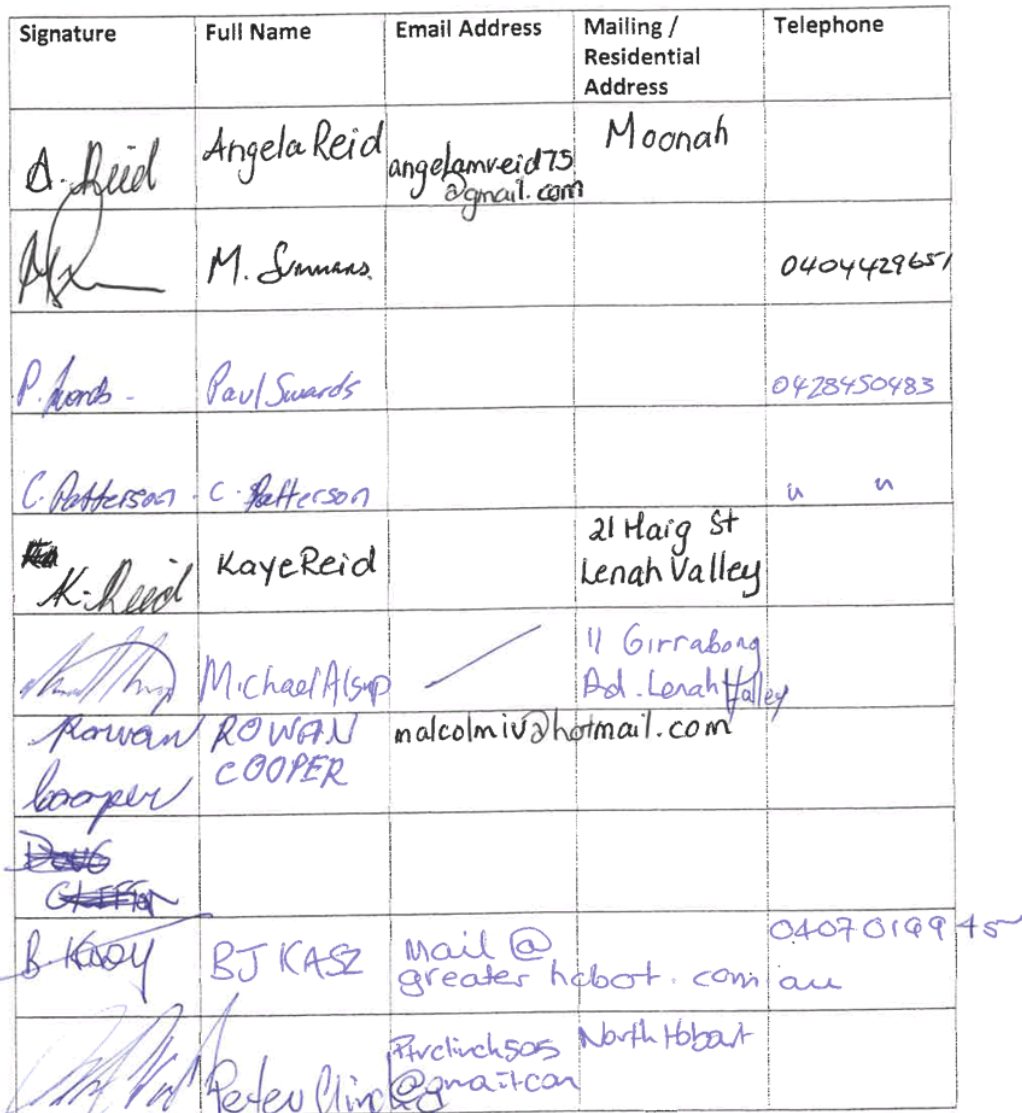 Signature Full Name Email Address Mailing / Residential Address Telephone
A. Reid Angela Reid angelamreid75 @gmail.com Moonah
M. 0404429651
P. Swards Paul Swards 0428450483
C. Patterson C. Patterson " "
K. Reid Kaye Reid 21 Haig St Lenah Valley
Michael Alsup 11 Girrabong Rd. Lenah Valley
Rowan Cooper ROWAN COOPER malcolmiv@hotmail.com
DOUG
B KASZ BJ KASZ mail @ greater hobart. com au 0407019945
Peter @gmail.com North Hobart